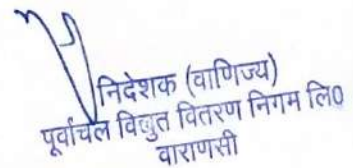 निदेशक (वाणिज्य)
पूर्वांचल विद्युत वितरण निगम लि0
वाराणसी